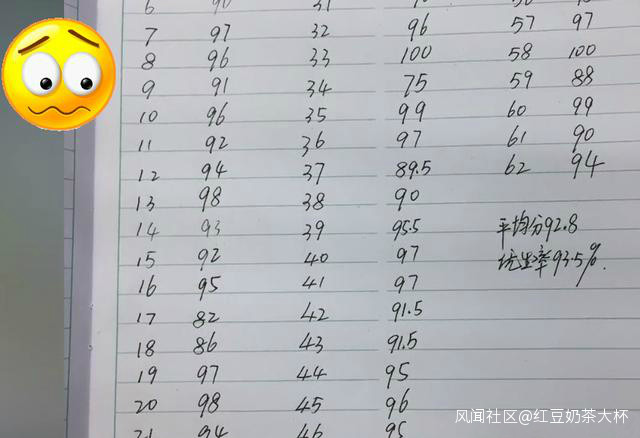 7 97 32 96 57 97
8 96 33 100 58 100
9 91 34 75 59 88
10 96 35 99 60 99
11 92 36 97 61 90
12 94 37 89.5 62 94
13 98 38 90
14 93 39 95.5 平均分92.8
15 92 40 97 优生率93.5%.
16 95 41 97
17 82 42 91.5
18 86 43 91.5
19 97 44 95
20 98 45 96
21 94 46 95
风闻社区@红豆奶茶大杯